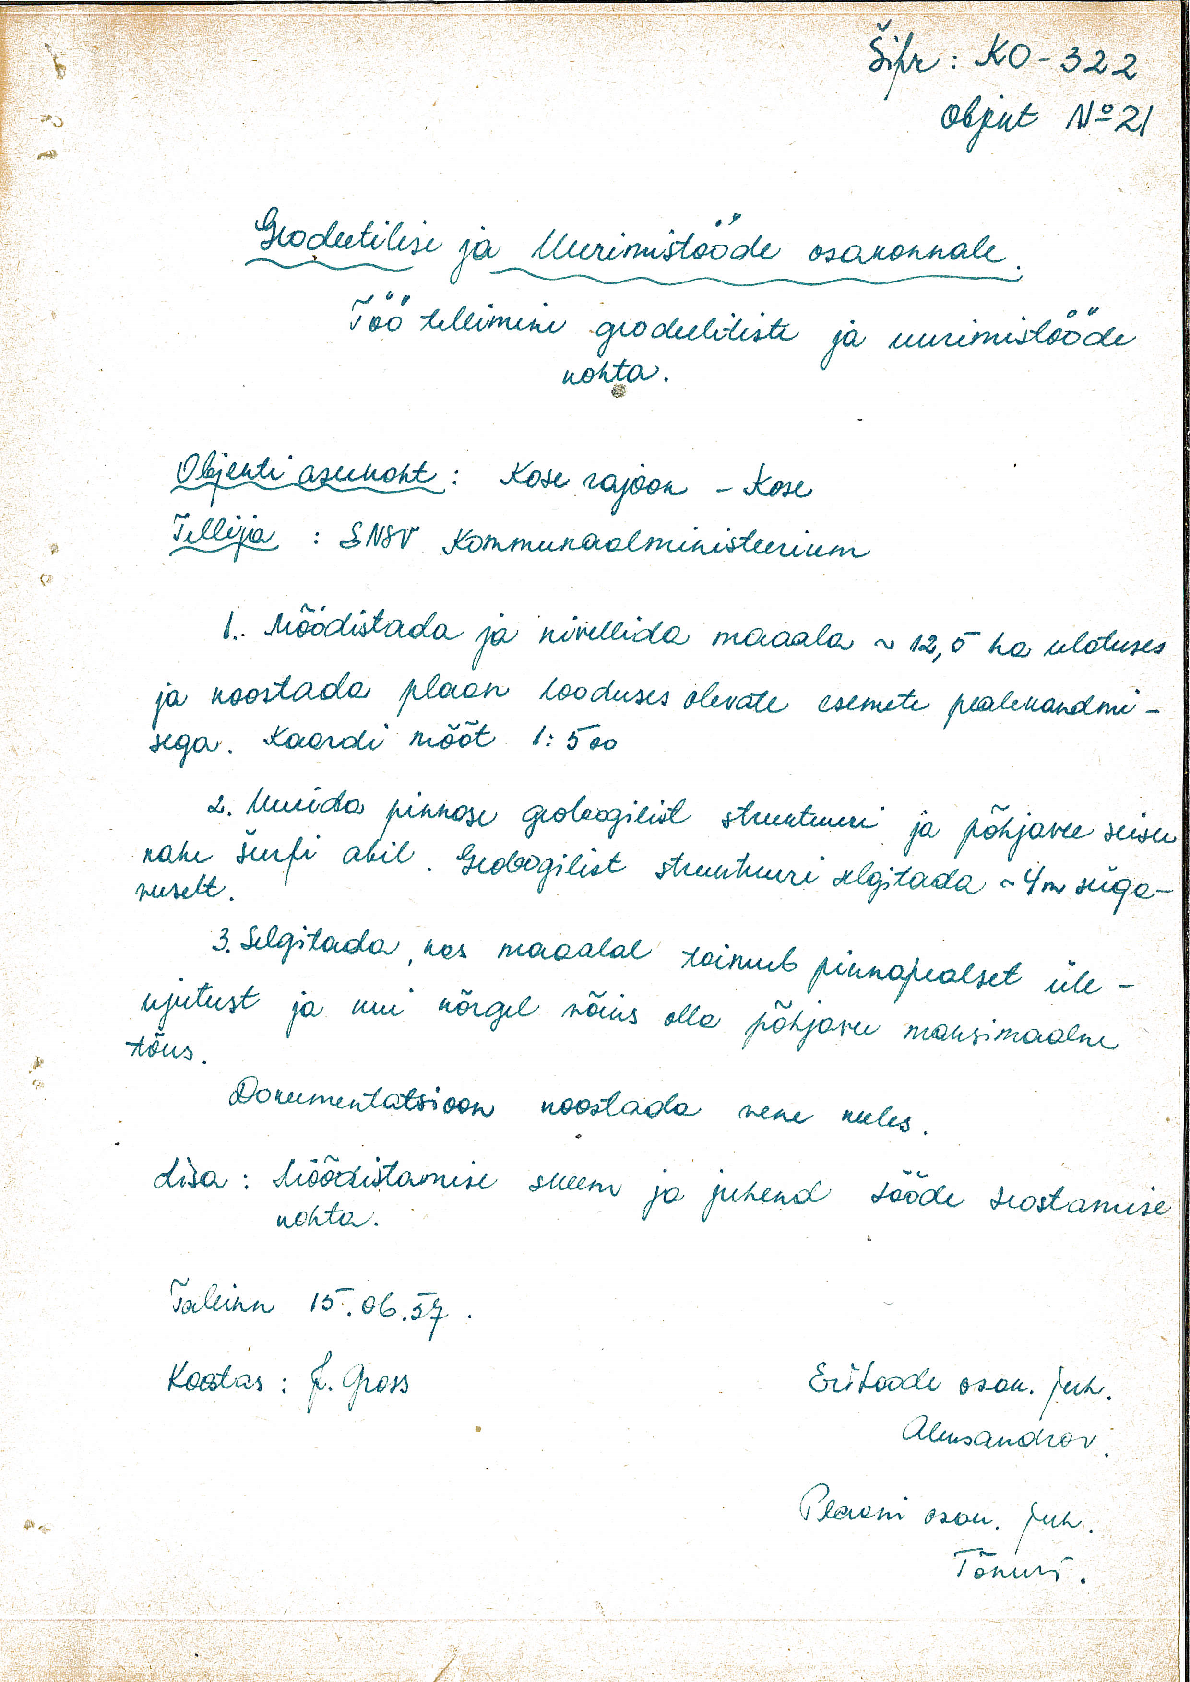 Šifr: KO-322
Objekt №21
Geodeetilise ja Uurimistööde osakonnale.
Töö tellimine geodeetiliste ja uurimistööde
kohta.
Objekti asukoht: Kose rajoon - Kose
Tellija : ENSV Kommunaalministeerium
1. Mõõdistada ja nivellida maaala ~ 12,5 ha ulatuses
ja koostada plaan looduses olevate esemete pealekandmi-
sega. Kaardi mõõt 1:500
2. Uurida pinnase geoloogilist struktuuri ja põhjavee seisu
kahe šurfi abil. Geoloogilist struktuuri selgitada ~4m süga-
vuselt.
3. Selgitada, kas maaalal toimub pinnapealset üle-
ujutust ja kui kõrgel võiks olla põhjavee maksimaalne
tõus.
Dokumentatsioon koostada vene keeles.
Lisa: Mõõdistamise skeem ja juhend tööde teostamise
kohta.
Tallinn 15.06.57.
Koostas: Gross
Eritööde osak. juh.
Aleksandrov.
Plaani osak. juh.
Tõnuri.